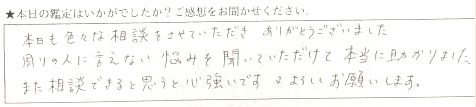 ★本日の鑑定はいかがでしたか？ご感想をお聞かせください.
本日も色々な相談をさせていただき ありがとうございました
周りの人に言えない悩みを聞いていただけて本当に助かりました
また相談できると思うと心強いです 又よろしくお願いします。